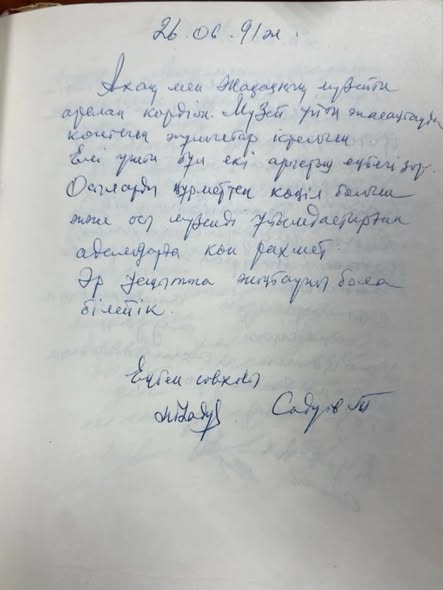 26.06.91ж.
Ахаң мен Жақаңның музейін
аралап көрдім. Музей үшін
көптеген жұмыстар істелген
Елі үшін бұл екі арыстың еңбегі зор.
Осыларды құрметтеп көңіл бөлген
және осы музейді ұйымдастырған
адамдарға көп рахмет.
Әр уақытта жоқтаушы бола
білейік.
Еңбек совхозы
Садуов Т